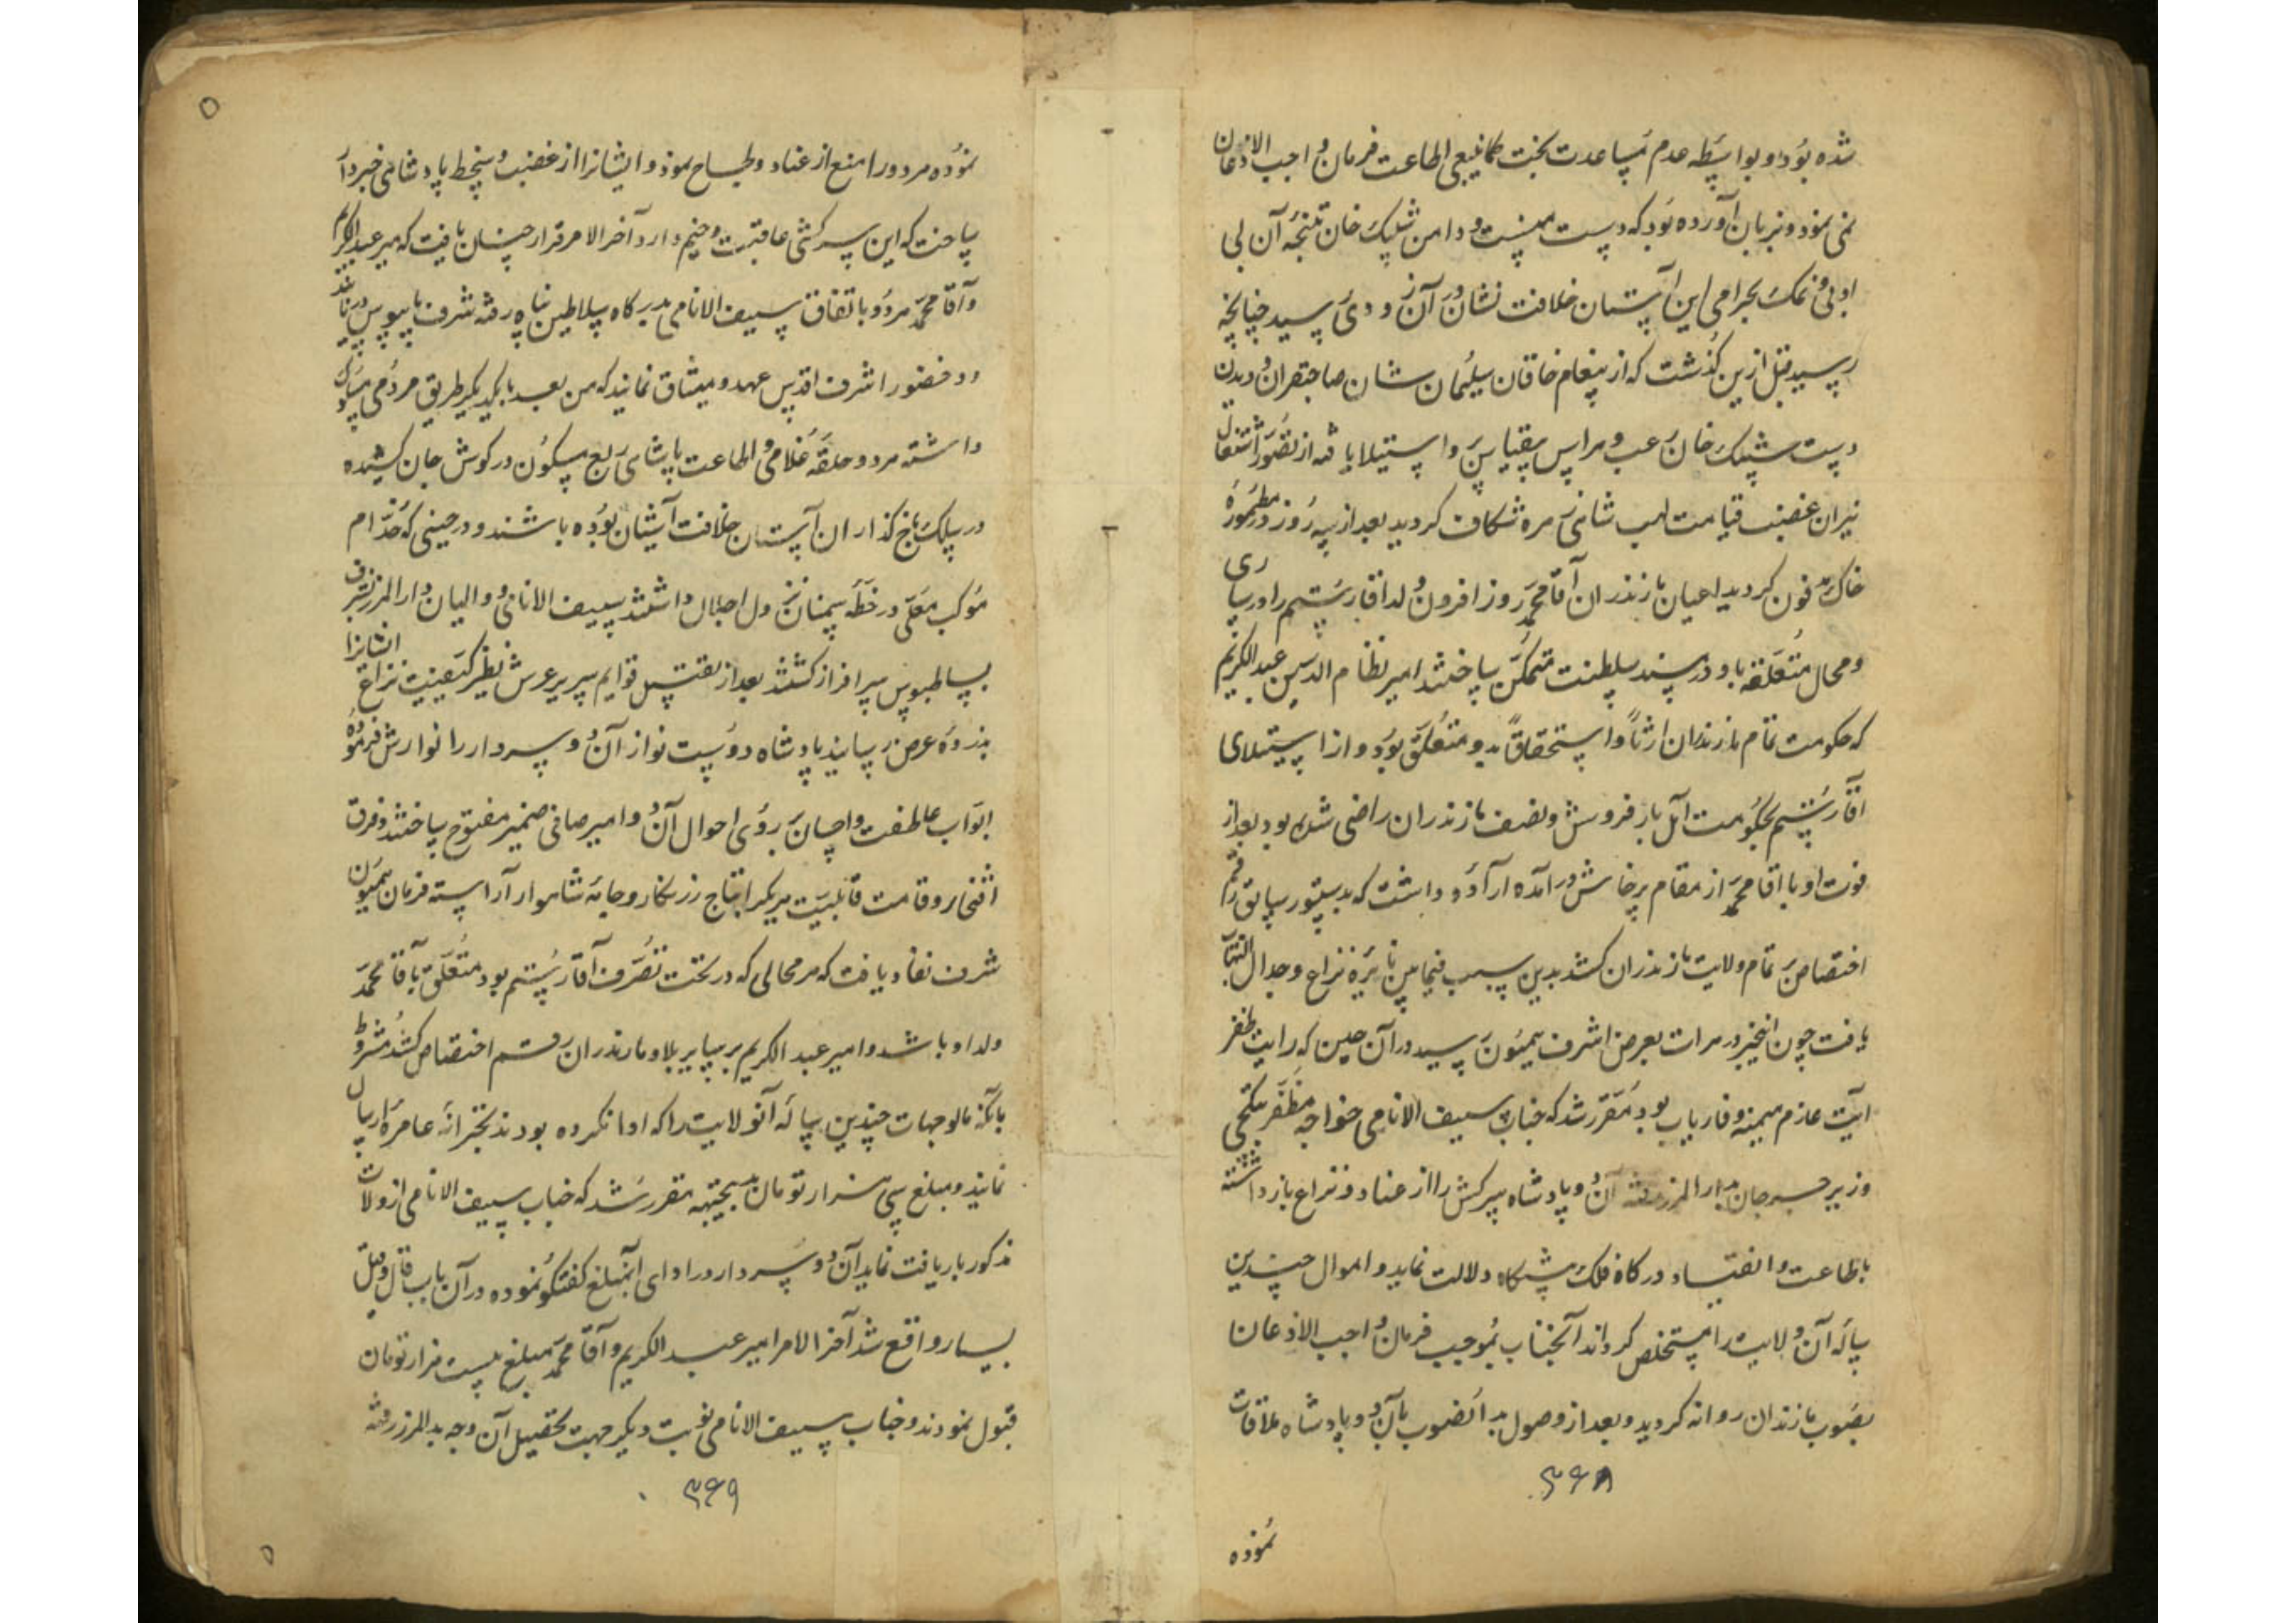 شده بود و بواسطه عدم مساعدت بخت کماینبغی اطاعت فرمان واجب الاذعان
نمی نمود و بزبان آورده بود که دست منست و دامن شیبک خان نتیجه آن بی
ادبی و نمک بحرامی این آستان خلافت نشان در آن زودی رسید چنانچه
رسید قبل ازین گذشت که از پیغام خاقان سلیمان شان صاحبقران و دیدن
دست شیبک خان رعب و هراس بیقیاس بر او استیلا یافته از تصور اشتعال
نیران غضب قیامت لهب شاهی زهره شکاف کردید بعد از سه روز در مطموره
خاک مدفون کردید اعیان مازندران آقا محمد روز افزون ولد اقا رستم را در ساری
و محال متعلقه باو در مسند سلطنت متمکن ساختند امیر نظام الدین عبد الکریم
که حکومت تمام مازندران ارثاً و استحقاقاً بدو متعلق بود و از استیلای
آقا رستم بحکومت آمل بار فروش و نصف مازندران راضی شده بود بعد از
فوت او با اقا محمد از مقام پرخاش درآمده اراده داشت که بدستور سابق رقم
اختصاص بر تمام ولایت مازندران کشد بدین سبب فیمابین نایره نزاع و جدال التهاب
یافت چون اینخبر در هرات بعرض اشرف همیون رسید در آن حین که رایت ظفر
آیت عازم میمنه و فاریاب بود مقرر شد که جناب سیف الانامی خواجه مظفر بتکچی
وزیر جرجان بدار المرز رفته آن دو پادشاه سرکش را از عناد و نزاع باز داشته
باطاعت و انقیاد درکاه فلک پیشکاه دلالت نماید و اموال چندین
ساله آن ولایت را مستخلص کرداند آنجناب بموجب فرمان واجب الاذعان
بصوب مازندران روانه کردید و بعد از وصول بدانصوب بآن دو پادشاه ملاقات
۳۶۸
نموده
نموده هر دو را منع از عناد و لجاج نمود و ایشانرا از غضب و سخط پادشاهی خبردار
ساخت که این سرکشی عاقبت وخیم دارد آخر الامر قرار چنان یافت که میر عبد الکریم
و آقا محمد هر دو باتفاق سیف الانامی بدرکاه سلاطین پناه رفته شرف پایبوس دریابند
و در حضور اشرف اقدس عهد و میثاق نمایند که من بعد بایکدیکر طریق مردمی مسلوک
داشته هر دو حلقه غلامی و اطاعت پادشاه ربع مسکون در کوش جان کشیده
در سلک باج کذاران آستان خلافت آشیان بوده باشند و در حینی که خدام
موکب معلی در خطه سمنان نزول اجلال داشتند سیف الانامی و والیان دار المرز بشرف
بساطبوس سرافراز کشتند بعد از تقبیل قوایم سریر عرش نظیر کیفیت نزاع ایشانرا
بذروه عرض رسانید پادشاه دوست نواز آن دو سردار را نوازش فرموده
ابواب عاطفت و احسان بر روی احوال آن دو امیر صافی ضمیر مفتوح ساختند و فرق
افتخار و قامت قابلیت هریکرا بتاج زرنکار و جامه شاهوار آراسته فرمان همیون
شرف نفاذ یافت که هر محالی که در تحت تصرف آقا رستم بود متعلق بآقا محمد
ولد او باشد و امیر عبد الکریم بر سایر بلاد مازندران رقم اختصاص کشد مشروط
بآنکه مالوجهات چندین ساله آنولایت را که ادا نکرده بودند بخزانه عامره ارسال
نمایند و مبلغ سی هزار تومان بیجهته مقرر شد که جناب سیف الانامی از ولات
مذکور باریافت نماید آن دو سردار در ادای آنمبلغ کفتکو نموده در آن باب قال و قیل
بسیار واقع شد آخر الامر امیر عبد الکریم و آقا محمد مبلغ بیست هزار تومان
قبول نمودند و جناب سیف الانامی نوبت دیکر جهت تحصیل آن وجه بدار المرز رفته
۳۶۹